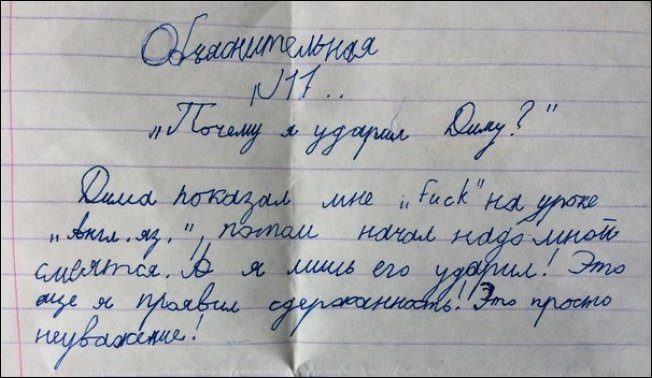 Объяснительная
№17..
„Почему я ударил Диму?"
Дима показал мне „Fuck" на уроке
„Англ. яз.", потом начал надо мной
смеятся. А я лишь его ударил! Это
еще я проявил сдержанность! Это просто
неуважение!